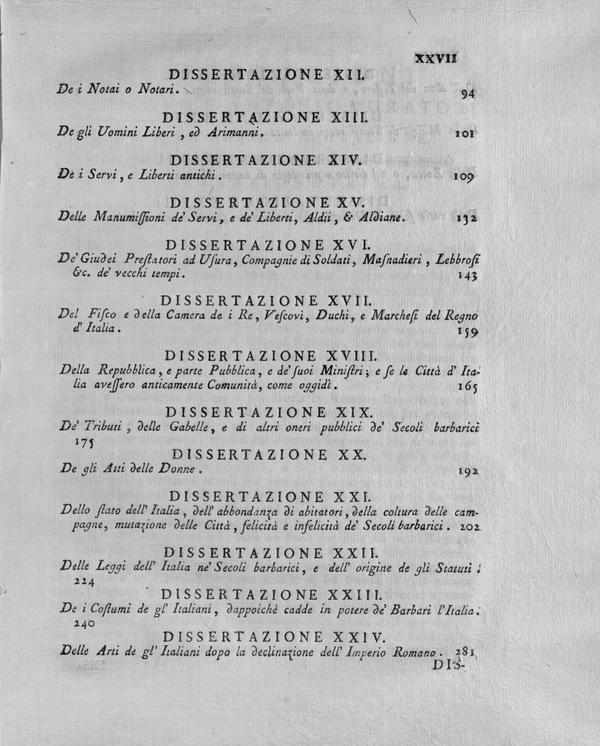 XXVII
DISSERTAZIONE XII.
De i Notai o Notari. 94
DISSERTAZIONE XIII.
De gli Uomini Liberi, ed Arimanni. 101
DISSERTAZIONE XIV.
De i Servi, e Liberti antichi. 109
DISSERTAZIONE XV.
Delle Manumiſſioni de' Servi, e de' Liberti, Aldii, & Aldiane. 132
DISSERTAZIONE XVI.
De' Giudei Preſtatori ad Uſura, Compagnie di Soldati, Maſnadieri, Lebbroſi
&c. de' vecchi tempi. 143
DISSERTAZIONE XVII.
Del Fiſco e della Camera de i Re, Veſcovi, Duchi, e Marcheſi del Regno
d' Italia. 159
DISSERTAZIONE XVIII.
Della Repubblica, e parte Pubblica, e de' ſuoi Miniſtri; e ſe le Città d' Ita-
lia aveſſero anticamente Comunità, come oggidì. 165
DISSERTAZIONE XIX.
De' Tributi, delle Gabelle, e di altri oneri pubblici de' Secoli barbarici
175
DISSERTAZIONE XX.
De gli Atti delle Donne. 192
DISSERTAZIONE XXI.
Dello ſtato dell' Italia, dell' abbondanza di abitatori, della coltura delle cam-
pagne, mutazione delle Città, felicità e infelicità de' Secoli barbarici. 202
DISSERTAZIONE XXII.
Delle Leggi dell' Italia ne' Secoli barbarici, e dell' origine de gli Statuti.
224
DISSERTAZIONE XXIII.
De i Coſtumi de gl' Italiani, dappoichè cadde in potere de' Barbari l'Italia.
240
DISSERTAZIONE XXIV.
Delle Arti de gl' Italiani dopo la declinazione dell' Imperio Romano. 281
DIS-